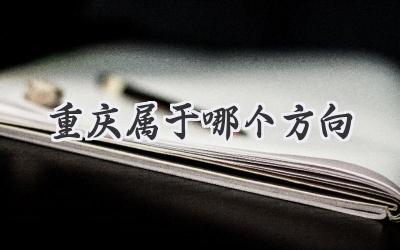 重庆属于哪个方向